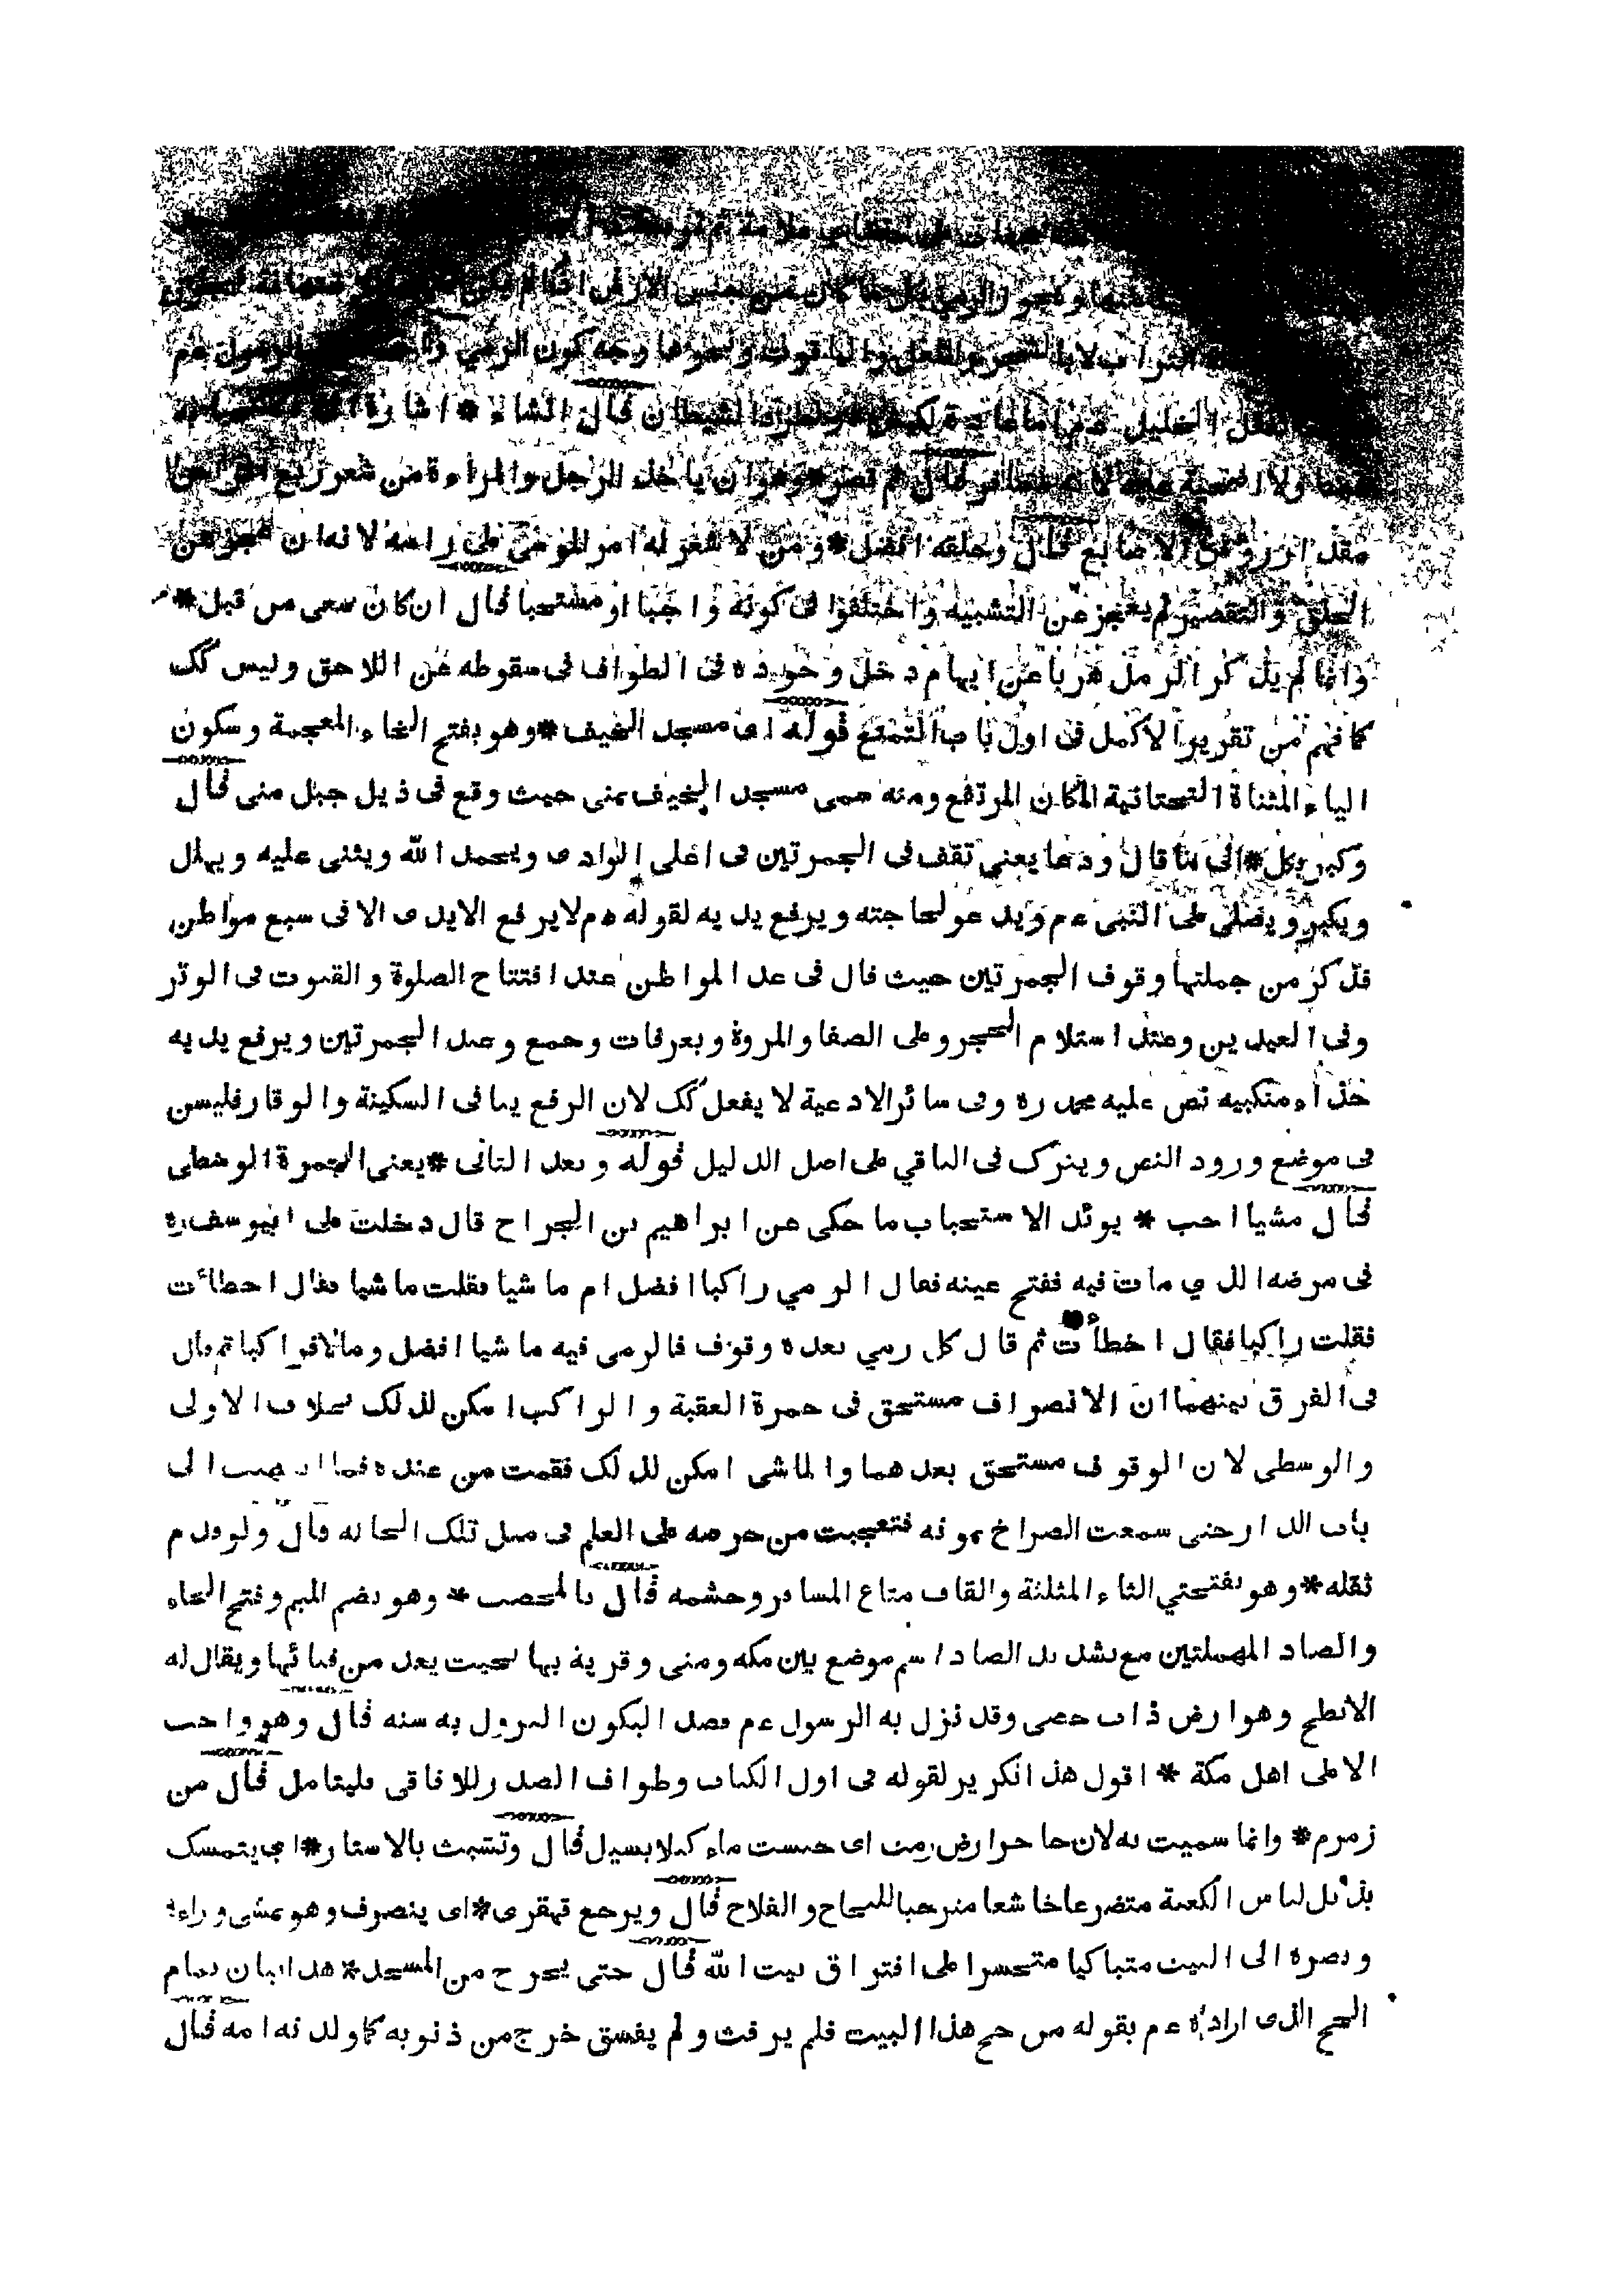 التراب لا بالشجر والنعل والياقوت ونحوها وجه كون الرمي
الخليل الشيطان قال الشاة * اشارة
ولا اضحية عليه لانه مسافر قال ثم قصر * وهو ان ياخذ الرجل والمراءة من شعر ربع الراس
مقدار رؤس الاصابع قال وحلقه افضل * ومن لا شعر له امر الموسى على راسه لانه ان عجز عن
الحلق والتقصير لم يعجز عن التشبيه واختلفوا فى كونه واجبا او مستحبا قال ان كان سعى من قبل *
وانما لم يذكر الرمل هربا عن ايهام دخل وجوده فى الطواف فى سقوطه عن اللاحق وليس كك
كما فهم من تقرير الاكمل فى اول باب التمتع قوله اى مسجد الخيف * وهو بفتح الخاء المعجمة وسكون
الياء المثناة التحتانية المكان المرتفع ومنه سمى مسجد الخيف بمنى حيث وقع فى ذيل جبل منى قال
وكبر بكل * الى ما قال ودعا يعني تقف فى الجمرتين فى اعلى الوادى ويحمد الله ويثنى عليه ويهلل
ويكبر ويصلى على النبى ءم ويدعو لحاجته ويرفع يديه لقوله ءم لا يرفع الايدى الا فى سبع مواطن
فذكر من جملتها وقوف الجمرتين حيث قال فى عد المواطن عند افتتاح الصلوة والقنوت فى الوتر
وفى العيدين وعند استلام الحجر وعلى الصفا والمروة وبعرفات وجمع وعند الجمرتين ويرفع يديه
حذاء منكبيه نص عليه محمد ره وفى سائر الادعية لا يفعل كك لان الرفع ينافى السكينة والوقار فليس
فى موضع ورود النص ويترك فى الباقي على اصل الدليل قوله وبعد الثانى * يعنى الجمرة الوسطى
قال مشيا احب * يوئد الاستحباب ما حكى عن ابراهيم بن الجراح قال دخلت على ابيوسف ره
فى مرضه الذي مات فيه ففتح عينه فقال الرمي راكبا افضل ام ماشيا فقلت ماشيا فقال اخطأت
فقلت راكبا فقال اخطأت ثم قال كل رمي بعده وقوف فالرمى فيه ماشيا افضل ومالا فراكبا ثم قال
فى الفرق بينهما ان الانصراف مستحق فى جمرة العقبة والراكب امكن لذلك بخلاف الاولى
والوسطى لان الوقوف مستحق بعدهما والماشى امكن لذلك فقمت من عنده فما انتهيت الى
باب الدار حتى سمعت الصراخ بموته فتعجبت من حرصه على العلم فى مثل تلك الحالة قال ولو قدم
ثقله * وهو بفتحتي الثاء المثلثة والقاف متاع المسافر وحشمه قال بالمحصب * وهو بضم الميم وفتح الحاء
والصاد المهملتين مع تشديد الصاد اسم موضع بين مكه ومنى وقرية بها بحيث يعد من فنائها ويقال له
الابطح وهو ارض ذات حصى وقد نزل به الرسول ءم قصدا ليكون النزول به سنه قال وهو واجب
الا على اهل مكة * اقول هذا تكرير لقوله فى اول الكتاب وطواف الصدر للافاقى فليتامل قال من
زمزم * وانما سميت به لان هاجر زمت اى حبست ماءه كيلا يسيل قال وتشبث بالاستار * اي يتمسك
بذيل لباس الكعبة متضرعا خاشعا مترحبا للنجاح والفلاح قال ويرجع قهقرى * اى ينصرف وهو يمشى وراءه
وبصره الى البيت متباكيا متحسرا على افتراق بيت الله قال حتى يخرج من المسجد * هذا بيان تمام
الحج الذى اراده ءم بقوله من حج هذا البيت فلم يرفث ولم يفسق خرج من ذنوبه كما ولدته امه قال